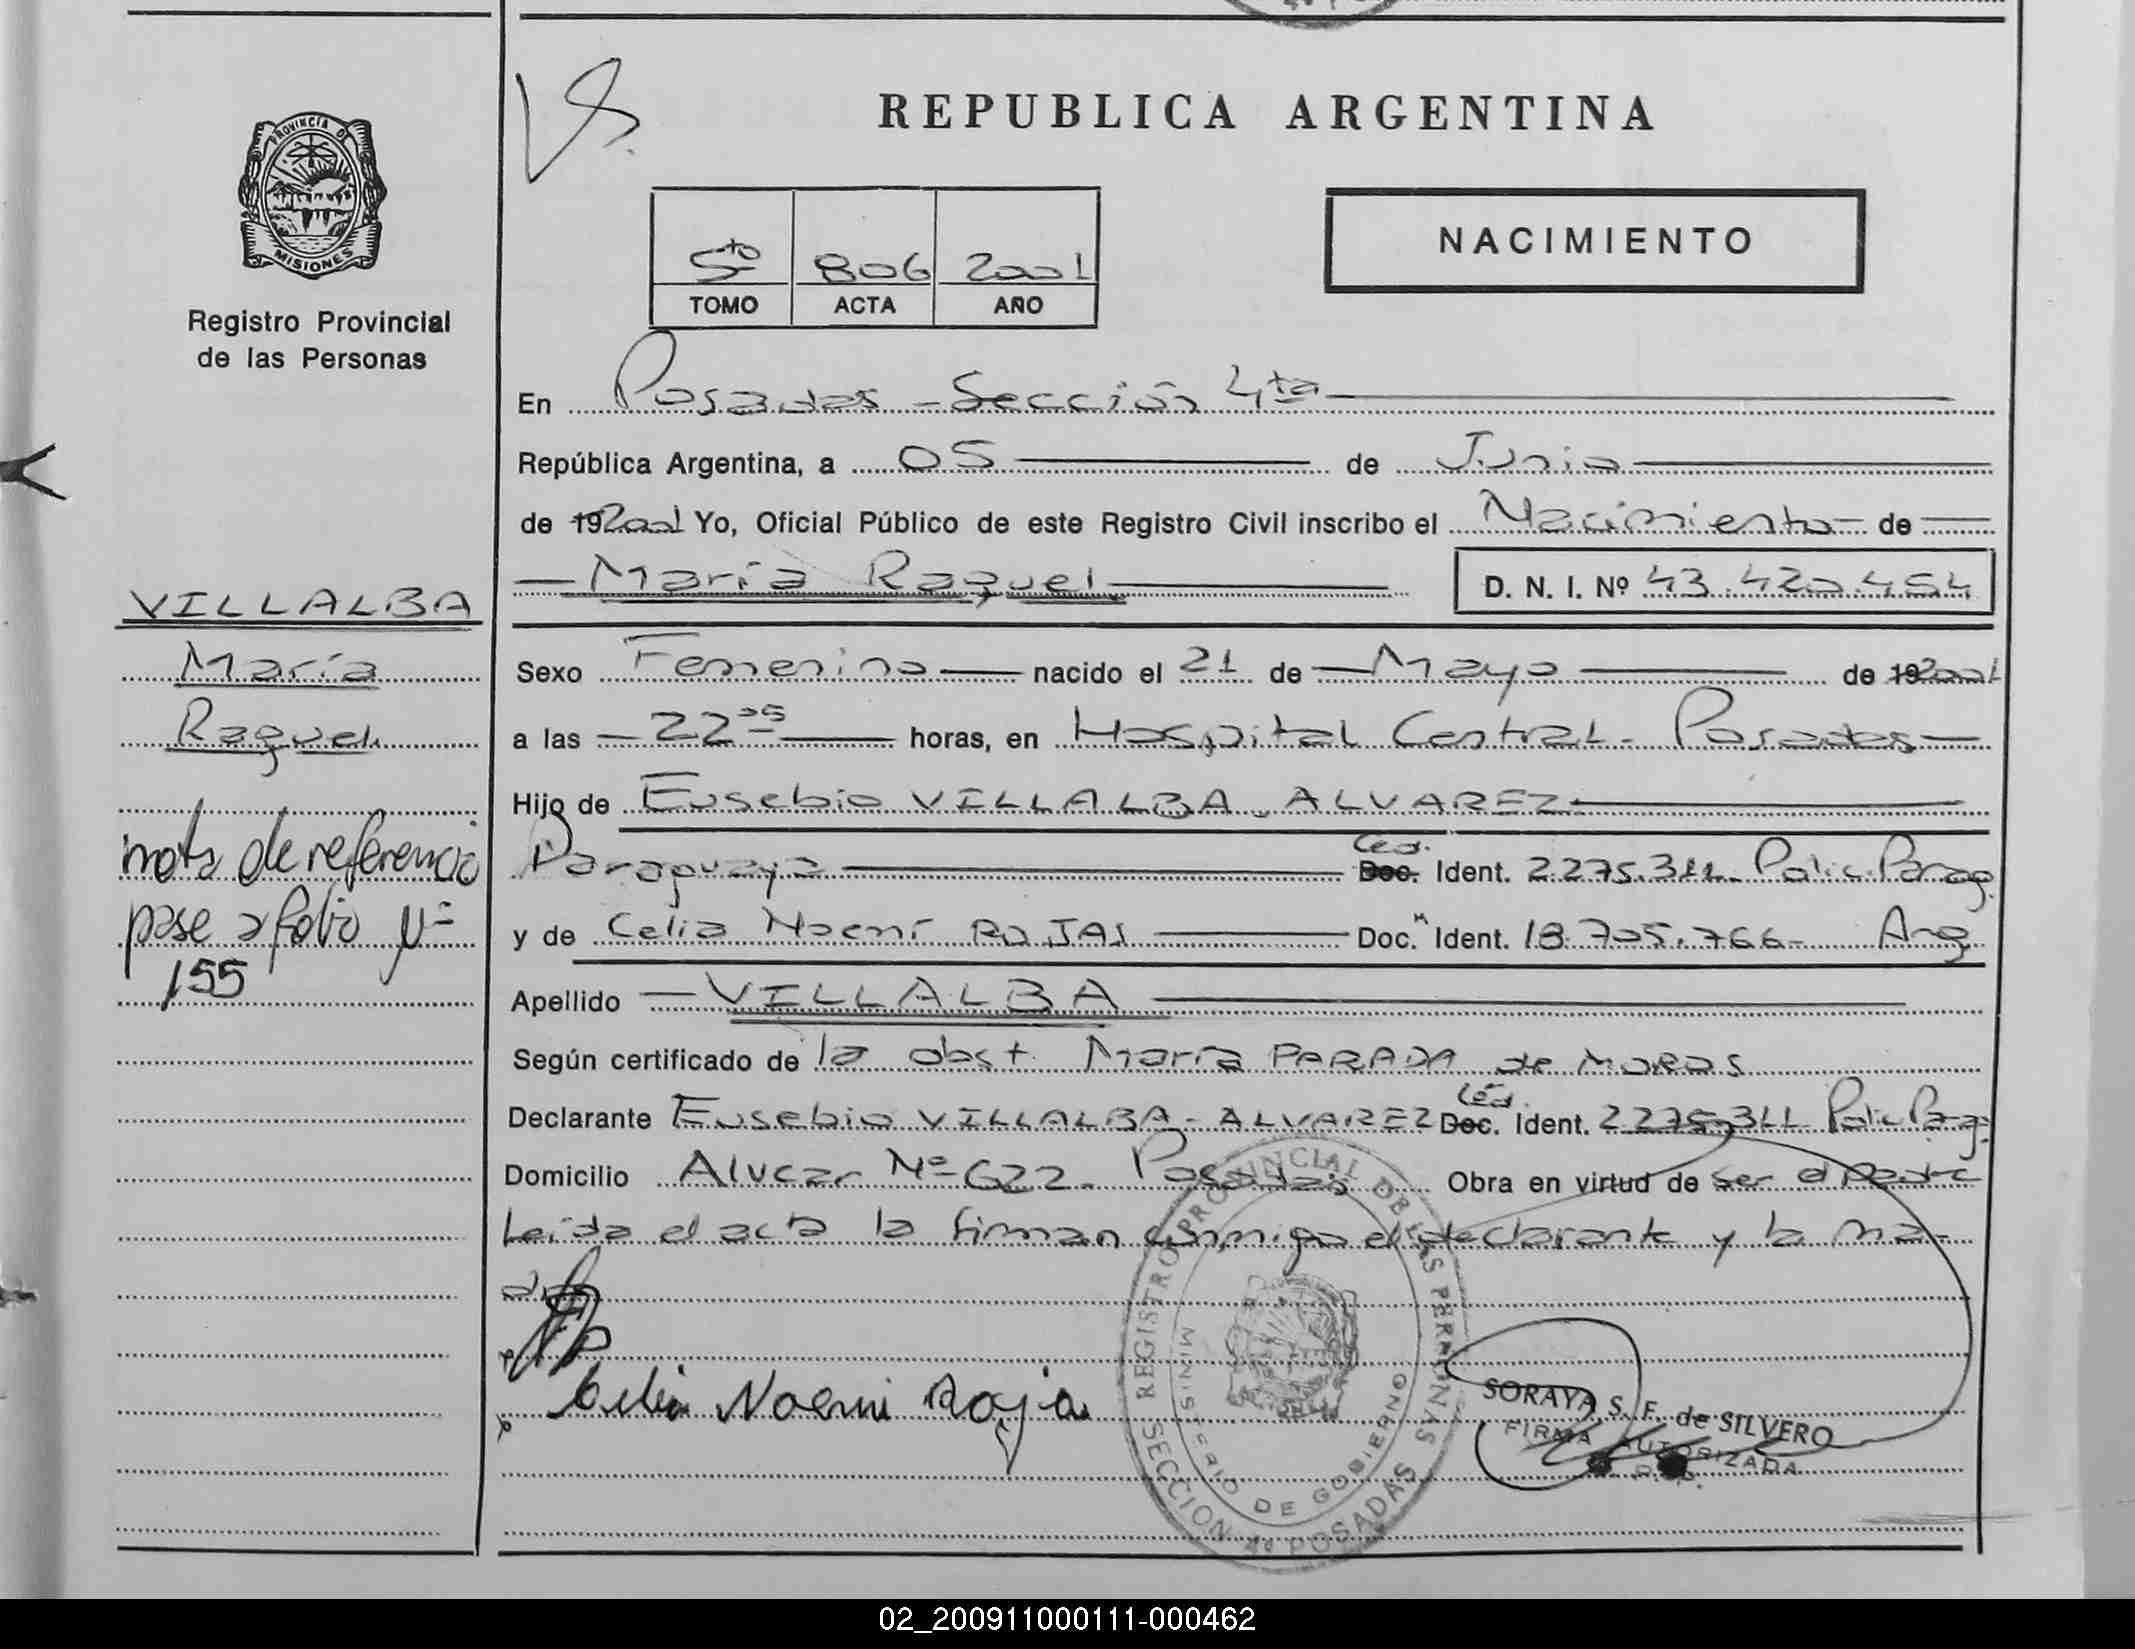 PROVINCIA DE
MISIONES
Registro Provincial
de las Personas
VILLALBA
María
Raquel
nota de referencia
pase a folio Nº
155
REPUBLICA ARGENTINA
NACIMIENTO
5to 806 2001
TOMO ACTA AÑO
En Posadas - Sección 4ta
República Argentina, a 05 de Junio
de 192001 Yo, Oficial Público de este Registro Civil inscribo el Nacimiento de
María Raquel D. N. I. Nº 43.420.454
Sexo Femenino nacido el 21 de Mayo de 192001
a las 22 05 horas, en Hospital Central - Posadas
Hijo de Eusebio VILLALBA - ALVAREZ
Paraguayo Ced. Doc. Ident. 2275.311 - Polic. Parag.
y de Celia Noemí ROJAS Doc. Ident. 18.705.766 - Arg
Apellido VILLALBA
Según certificado de la obst. María PARADA de MORAS
Declarante Eusebio VILLALBA - ALVAREZ Céd. Doc. Ident. 2275311 Polic. Parag.
Domicilio Alvear Nº 622 - Posadas Obra en virtud de ser el padre
Leída el acta la firman conmigo el declarante y la ma-
dre
Celia Noemi Roja
REGISTRO PROVINCIAL DE LAS PERSONAS
MINISTERIO DE GOBIERNO
SECCION 4ª POSADAS
SORAYA S. F. de SILVERO
FIRMA AUTORIZADA
02_200911000111-000462